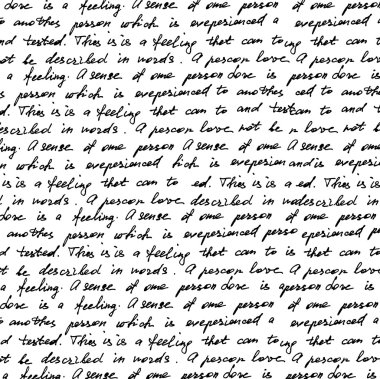 dore is a feeling. A sense of one person of one person
to anothes person which is eveperienced a eveperienced
nd tested. This is is a feeling that can to ing that can t
ot be described in words. A person love. A person lov
a feeling. A sense of one person dore is person dore is
s person which is eveperienced to anothes ced to anothes
d. This is is a feeling that can to and test can to and t
escribed in words. A person love not be n love not b
ing. A sense of one person A sense of one A sense of one
n which is eveperienced hich is eveperien and is eveperie
is is a feeling that can to ed. This is a ed. This is is
in words. A person love described in wo described in
dore is a feeling. A sense of one person of one person
anothes person which is eveperienced perso eperienced pe
d tested. This is is a feeling that can to is that can to
t be described in words. A person love. A person lov
a feeling. A sense of one person dore is a person dore is
dore is a feeling. A sense of one person of one person
to anothes person which is eveperienced a eveperienced
nd tested. This is is a feeling that can to ing that can t
ot be described in words. A person love. A person lov
a feeling. A sense of one person dore is person dore is